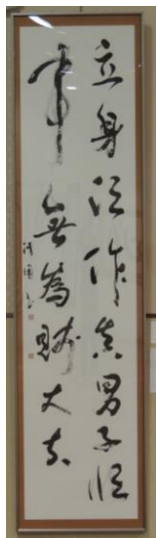 立身須作真男子臨
事無為賤丈夫